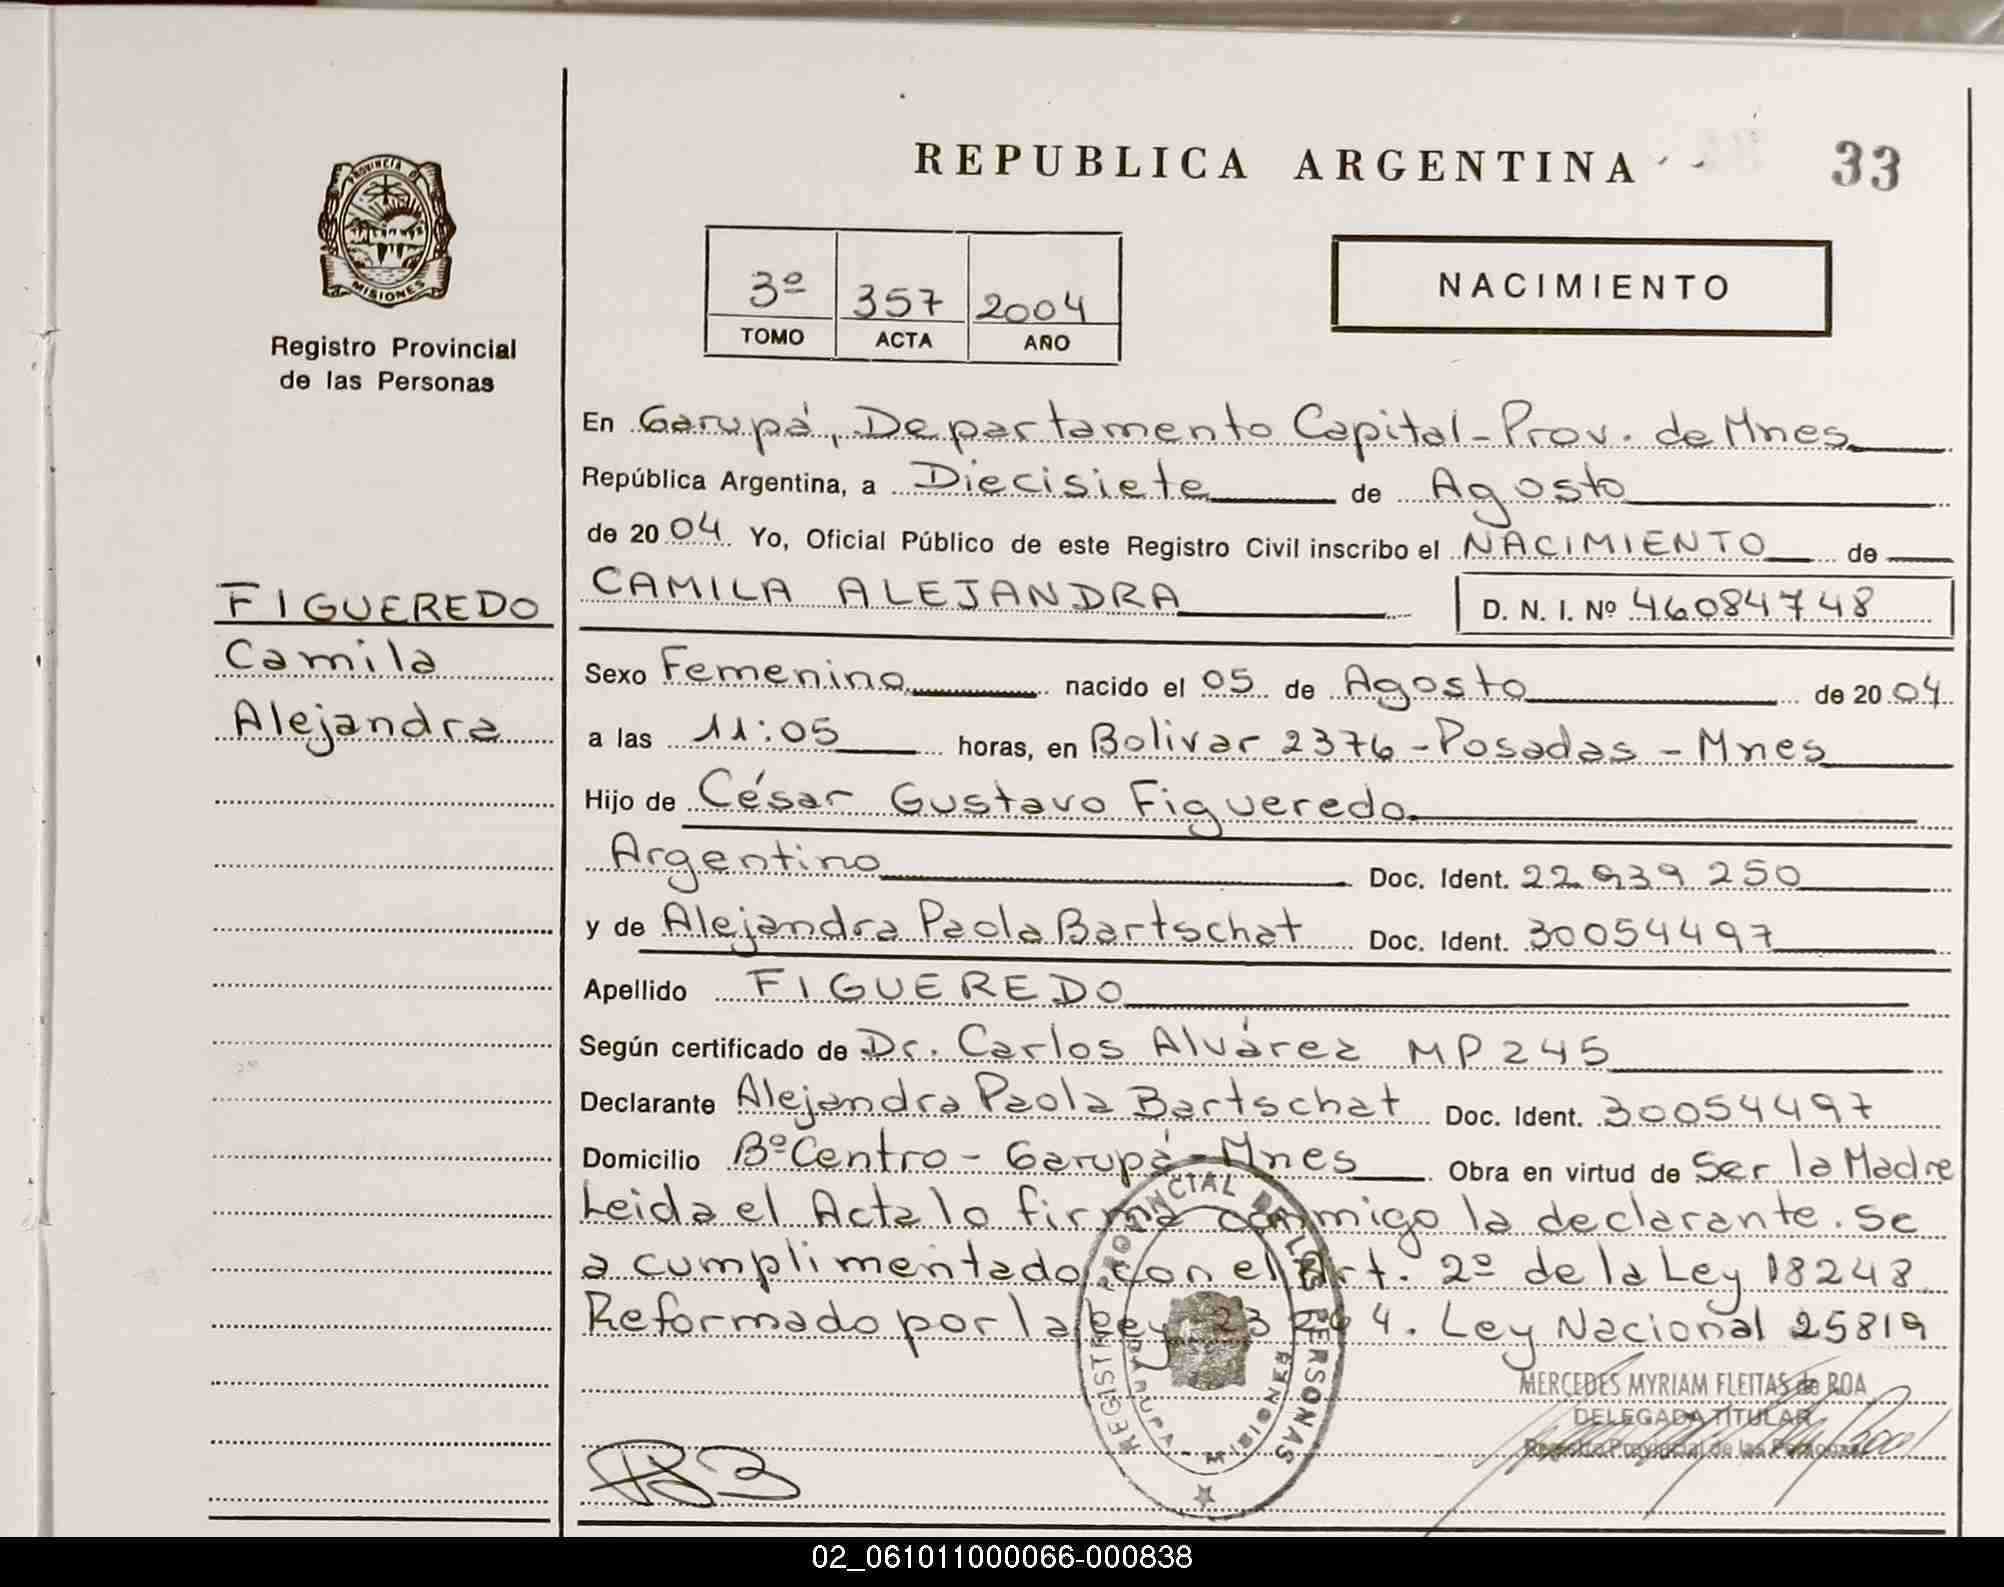 REPUBLICA ARGENTINA
33
PROVINCIA D
MISIONES
Registro Provincial
de las Personas
3º 357 2004
TOMO ACTA AÑO
NACIMIENTO
En Garupá, Departamento Capital - Prov. de Mnes
República Argentina, a Diecisiete de Agosto
de 2004 Yo, Oficial Público de este Registro Civil inscribo el NACIMIENTO de
CAMILA ALEJANDRA D. N. I. Nº 46084748
FIGUEREDO
Camila
Alejandra
Sexo Femenino nacido el 05 de Agosto de 2004
a las 11:05 horas, en Bolivar 2376 - Posadas - Mnes
Hijo de César Gustavo Figueredo
Argentino Doc. Ident. 22 939 250
y de Alejandra Paola Bartschat Doc. Ident. 30054497
Apellido FIGUEREDO
Según certificado de Dr. Carlos Alvárez MP 245
Declarante Alejandra Paola Bartschat Doc. Ident. 30054497
Domicilio Bº Centro - Garupá - Mnes Obra en virtud de Ser la Madre
Leida el Acta lo firma conmigo la declarante. Se
a cumplimentado con el Art. 2º de la Ley 18248
Reformado por la Ley 23264. Ley Nacional 25819
REGISTRO PROVINCIAL DE LAS PERSONAS
GARUPA - MISIONES
MERCEDES MYRIAM FLEITAS de ROA
DELEGADA TITULAR
Registro Provincial de las Personas
02_061011000066-000838